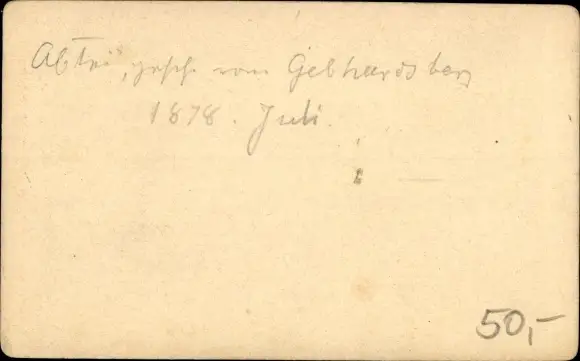 Abtei, gesch. vom Gebhardsberg
1878. Juli.
50,-